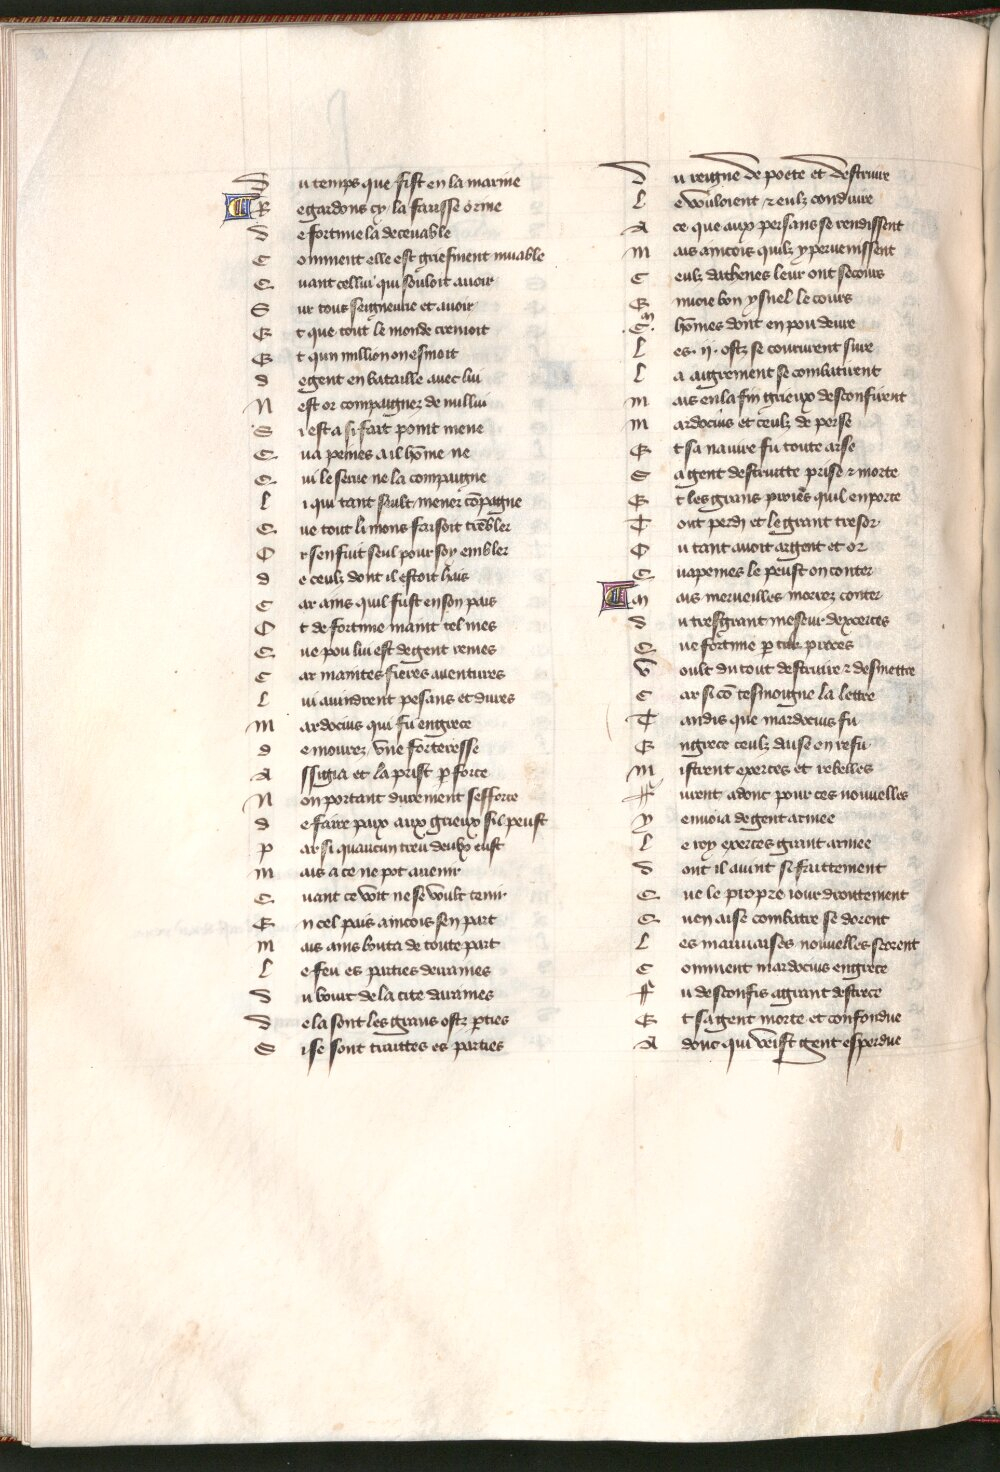 Du temps que fist en la marine
Regardons cy la fausse orine
De fortune la decevable
Comment elle est griefment muable
Quant cellui qui souloit avoir
Sur tous seigneurie et avoir
Et que tout le monde cremoit
Et qun million on esmoit
de gent en bataille avec lui
Nest or compaignez de nullui
Si est a si fait point mene
Qua peines a il hōme ne
Qui le serve ne la compaigne
Li qui tant seult mener cōpagne
Que tout li mons faisoit trēbler
Or senfuit seul pour soy embler
de ceulz dont il estoit hais
Car ains quil fust en son pais
Ot de fortune maint tel mes
Que pou lui est de gent remes
Car maintes fieres aventures
Lui avindrent pesans et dures
mardocius qui fu en grece
de mourez vne forteresse
Assigia et la prist p force
Non portant durement sefforce
de faire paix aux grieux sil peust
par si quaucun treu deulx eust
mais a ce ne pot avenir
Quant ce voit ne se voult tenir
En cel pais aincois sen part
mais ains bouta de toute part
Le feu es parties devrames
Du bourc de la cite durames
De la sont les grans ostz pties
Si se sont traittes es parties
Du reigne de poete et destruire
Le vouloient z eulz conduire
A ce que aux persans se rendissent
mais aincois quilz y pervenissent
Ceulz dathenes leur ont secours
Envoie bon ysnel le cours
.C.m hōmes dont en pou deure
Les .ij. ostz se coururent sure
La aigrement se combatirent
mais en la fin grieux desconfirent
mardocius et ceulz de perse
Et sa navire fu toute arse
Sa gent destruitte prise z morte
Et les grans proiēs quil en porte
Tout perdi et le grant tresor
Ou tant avoit argent et or
Qua peines le peust on conter
mais merveilles morrez conter
Du tres grant meseur dexerces
Que fortune p tur perces
Voult du tout destruire z desmettre
Car si cō tesmoigne la lettre
Tandis que mardocius fu
En grece ceulz daise en refu
mistrent exerces et rebelles
Furent adont pour ces nouvelles
y envoia de gent armee
Le roy exerces grant armee
Dont il avint si faittement
Que le propre iour droittement
Quen aise combatre se dorent
Les mauvaises nouvelles sorent
Comment mardocius en grece
Fu desconfis a grant destrece
Et sa gent morte et confondue
Adonc qui veist gent esperdue